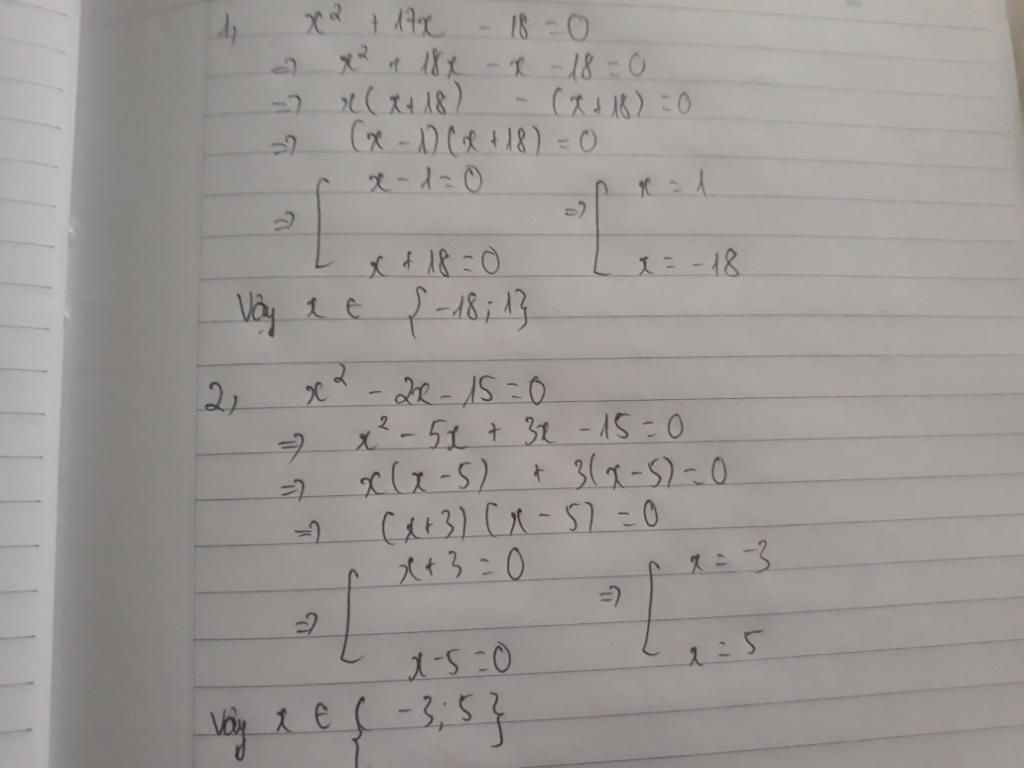 1, x² + 17x - 18 = 0
=> x² + 18x - x - 18 = 0
=> x(x+18) - (x+18) = 0
=> (x-1)(x+18) = 0
=> [ x-1=0 => [ x = 1
x+18=0 x = -18
Vậy x ∈ {-18; 1}
2, x² - 2x - 15 = 0
=> x² - 5x + 3x - 15 = 0
=> x(x-5) + 3(x-5) = 0
=> (x+3)(x-5) = 0
=> [ x+3=0 => [ x = -3
x-5=0 x = 5
Vậy x ∈ {-3; 5}